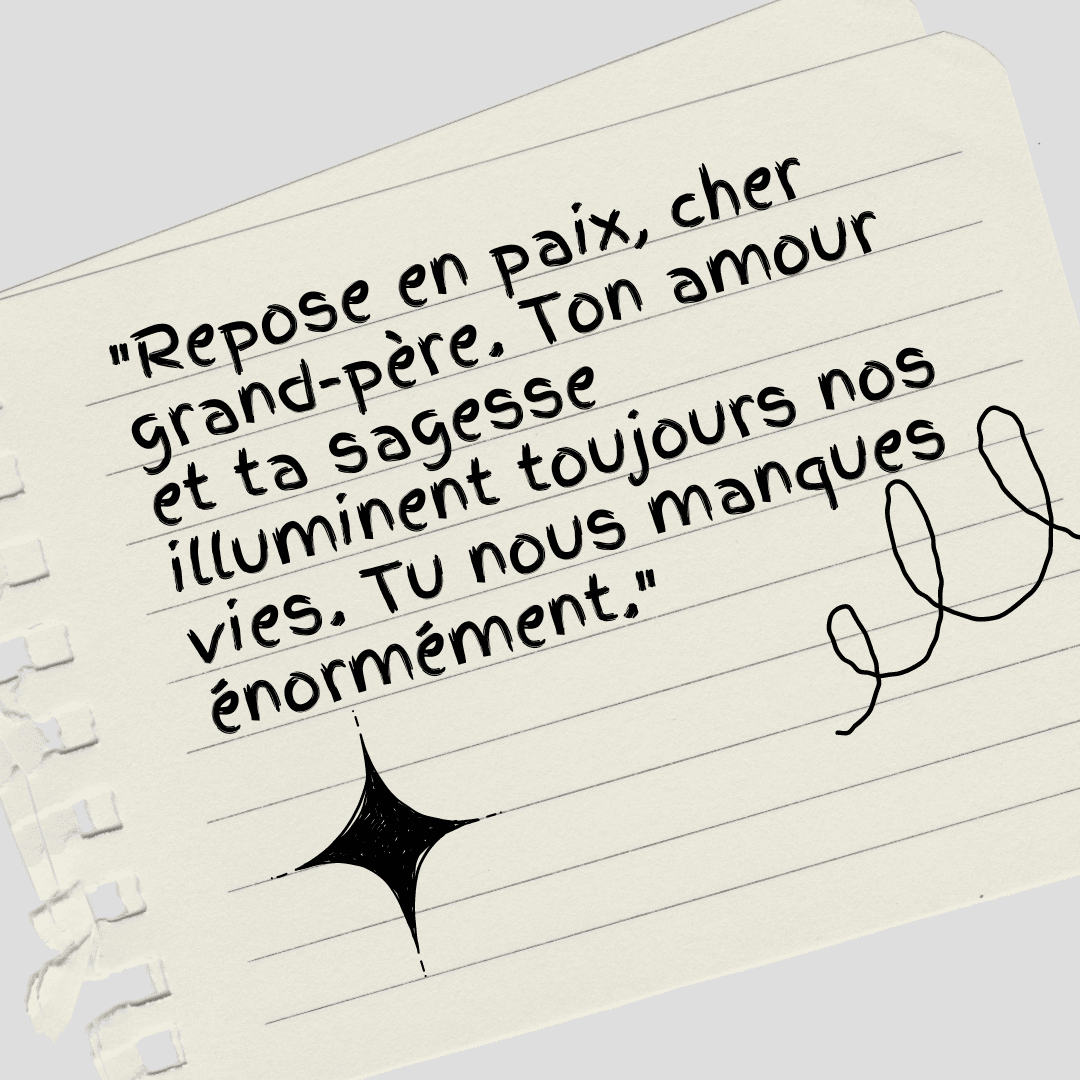 "Repose en paix, cher
grand-père. Ton amour
et ta sagesse
illuminent toujours nos
vies. Tu nous manques
énormément."